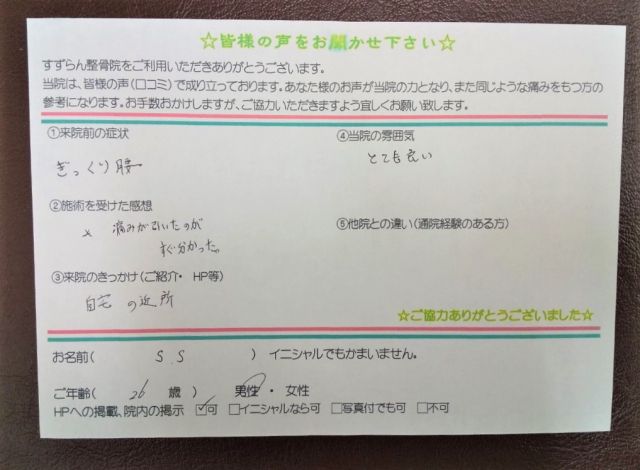 ☆皆様の声をお聞かせ下さい☆
すずらん整骨院をご利用いただきありがとうございます。
当院は、皆様の声(口コミ)で成り立っております。あなた様のお声が当院の力となり、また同じような痛みをもつ方の
参考になります。お手数おかけしますが、ご協力いただきますよう宜しくお願い致します。
①来院前の症状
ぎっくり腰
②施術を受けた感想
痛みが引いたのが
すぐ分かった。
③来院のきっかけ(ご紹介・ HP等)
自宅の近所
④当院の雰囲気
とても良い
⑤他院との違い(通院経験のある方)
☆ご協力ありがとうございました☆
お名前( S S ) イニシャルでもかまいません。
ご年齢( 26 歳 ) 男性 ・ 女性
HPへの掲載、院内の掲示 ☑可 □イニシャルなら可 □写真付でも可 □不可